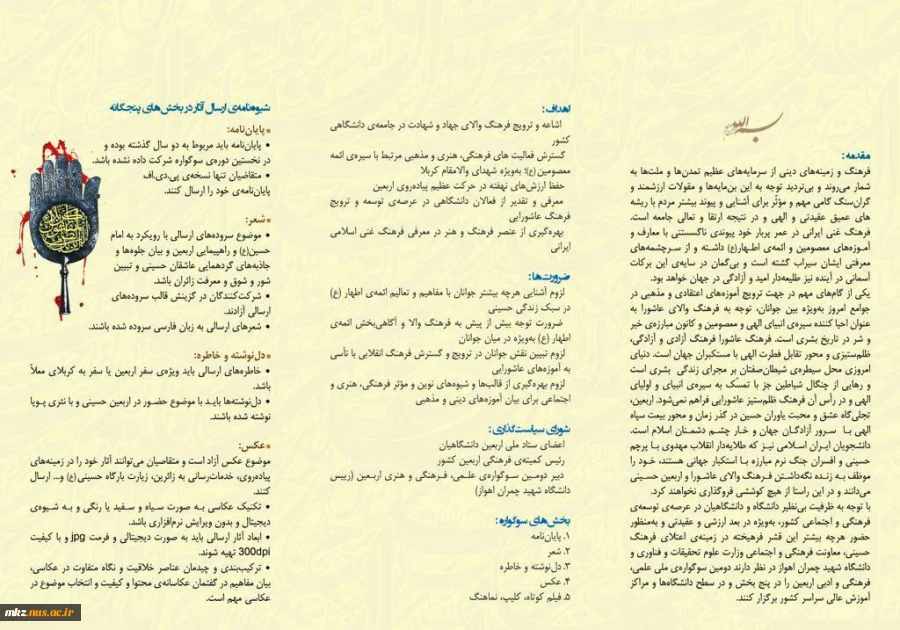 بسم الله
مقدمه:
فرهنگ و زمینه‌های دینی از سرمایه‌های عظیم تمدن‌ها و ملت‌ها به
شمار می‌روند و بی‌تردید توجه به این بن‌مایه‌ها و مقولات ارزشمند و
گران‌سنگ گامی مهم و مؤثر برای آشنایی و پیوند بیشتر مردم با ریشه
های عمیق عقیدتی و الهی و در نتیجه ارتقا و تعالی جامعه است.
فرهنگ غنی ایرانی در عمر پربار خود پیوندی ناگسستنی با معارف و
آمـوزه‌های معصومین و ائمه‌ی اطـهار(ع) داشتـه و از سـرچشمه‌های
معرفتی ایشان سیراب گشته است و بی‌گمان در سایه‌ی این برکات
آسمانی در آینده نیز طلیعه‌دار امید و آزادگی در جهان خواهد بود.
یکی از گام‌های مهم در جهت ترویج آموزه‌های اعتقادی و مذهبی در
جوامع امروز به‌ویژه بین جوانان، توجه به فرهنگ والای عاشورا به
عنوان احیا کننده سیره‌ی انبیای الهی و معصومین و کانون مبارزه‌ی خیر
و شر در تاریخ بشری است. فرهنگ عاشورا فرهنگ آزادی و آزادگی،
ظلم‌ستیزی و محور تقابل فطرت الهی با مستکبران جهان است. دنیای
امروزی محل سیطره‌ی شیطان‌صفتان بر مجرای زندگی بشری است
و رهایی از چنگال شیاطین جز با تمسّک به سیره‌ی انبیای و اولیای
الهی و در رأس آن فرهنگ ظلم‌ستیز عاشورایی فراهم نمی‌شود. اربعین،
تجلی‌گاه عشق و محبت یاوران حسین در گذر زمان و محور بیعت سپاه
الهی بـا سـرور آزادگـان جهان و خـار چشـم دشمـنان اسلام است.
دانشجویان ایـران اسلامی نیـز کـه طلایه‌دار انقلاب مهدوی بـا پرچم
حسینی و افسران جنگ نرم مبارزه بـا استکبار جهانی هستند، خـود را
موظف بـه زنـده نگه‌داشتن فـرهنگ والای عاشـورا و اربعین حسـینی
می‌دانند و در این راستا از هیچ کوششی فروگذاری نخواهند کرد.
با توجه به ظرفیت بی‌نظیر دانشگاه و دانشگاهیان در عرصه‌ی توسعه‌ی
فرهنگی و اجتماعی کشور، به‌ویژه در بعد ارزشی و عقیدتی و به‌منظور
حضور هرچه بیشتر این قشر فرهیخته در زمینه‌ی اعتلای فرهنگ
حسینی، معاونت فرهنگی و اجتماعی وزارت علوم تحقیقات و فناوری و
دانشگاه شهید چمران اهواز در نظر دارند دومین سوگواره‌ی ملی علمی،
فرهنگی و ادبی اربعین را در پنج بخش و در سطح دانشگاه‌ها و مراکز
آموزش عالی سراسر کشور برگزار کنند.
اهداف:
اشاعه و ترویج فرهنگ والای جهاد و شهادت در جامعه‌ی دانشگاهی
کشور
گسترش فعالیت های فرهنگی، هنری و مذهبی مرتبط با سیره‌ی ائمه
معصومین (ع)؛ به‌ویژه شهدای والامقام کربلا
حفظ ارزش‌های نهفته در حرکت عظیم پیاده‌روی اربعین
معرفی و تقدیر از فعالان دانشگاهی در عرصه‌ی توسعه و ترویج
فرهنگ عاشورایی
بهره‌گیری از عنصر فرهنگ و هنر در معرفی فرهنگ غنی اسلامی
ایرانی
ضرورت‌ها:
لزوم آشنایی هرچه بیشتر جوانان با مفاهیم و تعالیم ائمه‌ی اطهار (ع)
در سبک زندگی حسینی
ضرورت توجه بیش از پیش به فرهنگ والا و آگاهی‌بخش ائمه‌ی
اطهار (ع) به‌ویژه در میان جوانان
لزوم تبیین نقش جوانان در ترویج و گسترش فرهنگ انقلابی با تأسی
به آموزه‌های عاشورایی
لزوم بهره‌گیری از قالب‌ها و شیوه‌های نوین و مؤثر فرهنگی، هنری و
اجتماعی برای بیان آموزه‌های دینی و مذهبی
شورای سیاست‌گذاری:
اعضای ستاد ملی اربعین دانشگاهیان
رئیس کمیته‌ی فرهنگی اربعین کشور
دبیر دومین سـوگواره‌ی علـمی، فـرهنگی و هنری اربعین (رییس
دانشگاه شهید چمران اهواز)
بخش‌های سوگواره:
۱. پایان‌نامه
۲. شعر
۳. دل‌نوشته و خاطره
۴. عکس
۵. فیلم کوتاه، کلیپ، نماهنگ
شیوه‌نامه‌ی ارسال آثار در بخش‌های پنج‌گانه
▪ پایان‌نامه:
• پایان‌نامه باید مربوط به دو سال گذشته بوده و
در نخستین دوره‌ی سوگواره شرکت داده نشده باشد.
• متقاضیان تنها نسخه‌ی پی.دی.اف
پایان‌نامه‌ی خود را ارسال کنند.
▪ شعر:
• موضوع سروده‌های ارسالی با رویکرد به امام
حسین(ع) و راهپیمایی اربعین و بیان جلوه‌ها و
جاذبه‌های گردهمایی عاشقان حسینی و تبیین
شور و شوق و معرفت زائران باشد.
• شرکت‌کنندگان در گزینش قالب سروده‌های
ارسالی آزادند.
• شعرهای ارسالی به زبان فارسی سروده شده باشند.
▪ دل‌نوشته و خاطره:
• خاطره‌های ارسالی باید ویژه‌ی سفر اربعین یا سفر به کربلای معلاّ
باشد.
• دل‌نوشته‌ها بایـد با موضوع حضـور در اربعین حسینی و با نثری پـویا
نوشته شده باشند.
▪ عکس:
موضوع عکس آزاد است و متقاضیان می‌توانند آثار خود را در زمینه‌های
پیاده‌روی، خدمات‌رسانی به زائرین، زیارت بارگاه حسینی (ع) و... ارسال
کنند.
• تکنیک عکاسی بـه صورت سـیاه و سـفید یا رنگی و بـه شـیوه‌ی
دیجیتال و بدون ویرایش نرم‌افزاری باشد.
• ابعاد آثار ارسالی باید به صورت دیجیتالی و فرمت jpg و با کیفیت
300dpi تهیه شوند.
• ترکیب‌بندی و چیدمان عناصر خلاقیت و نگاه متفاوت در عکاسی،
بیان مفاهیم در گفتمان عکاسانه‌ی محتوا و کیفیت و انتخاب موضوع در
عکاسی مهم است.
mkz.nus.ac.ir